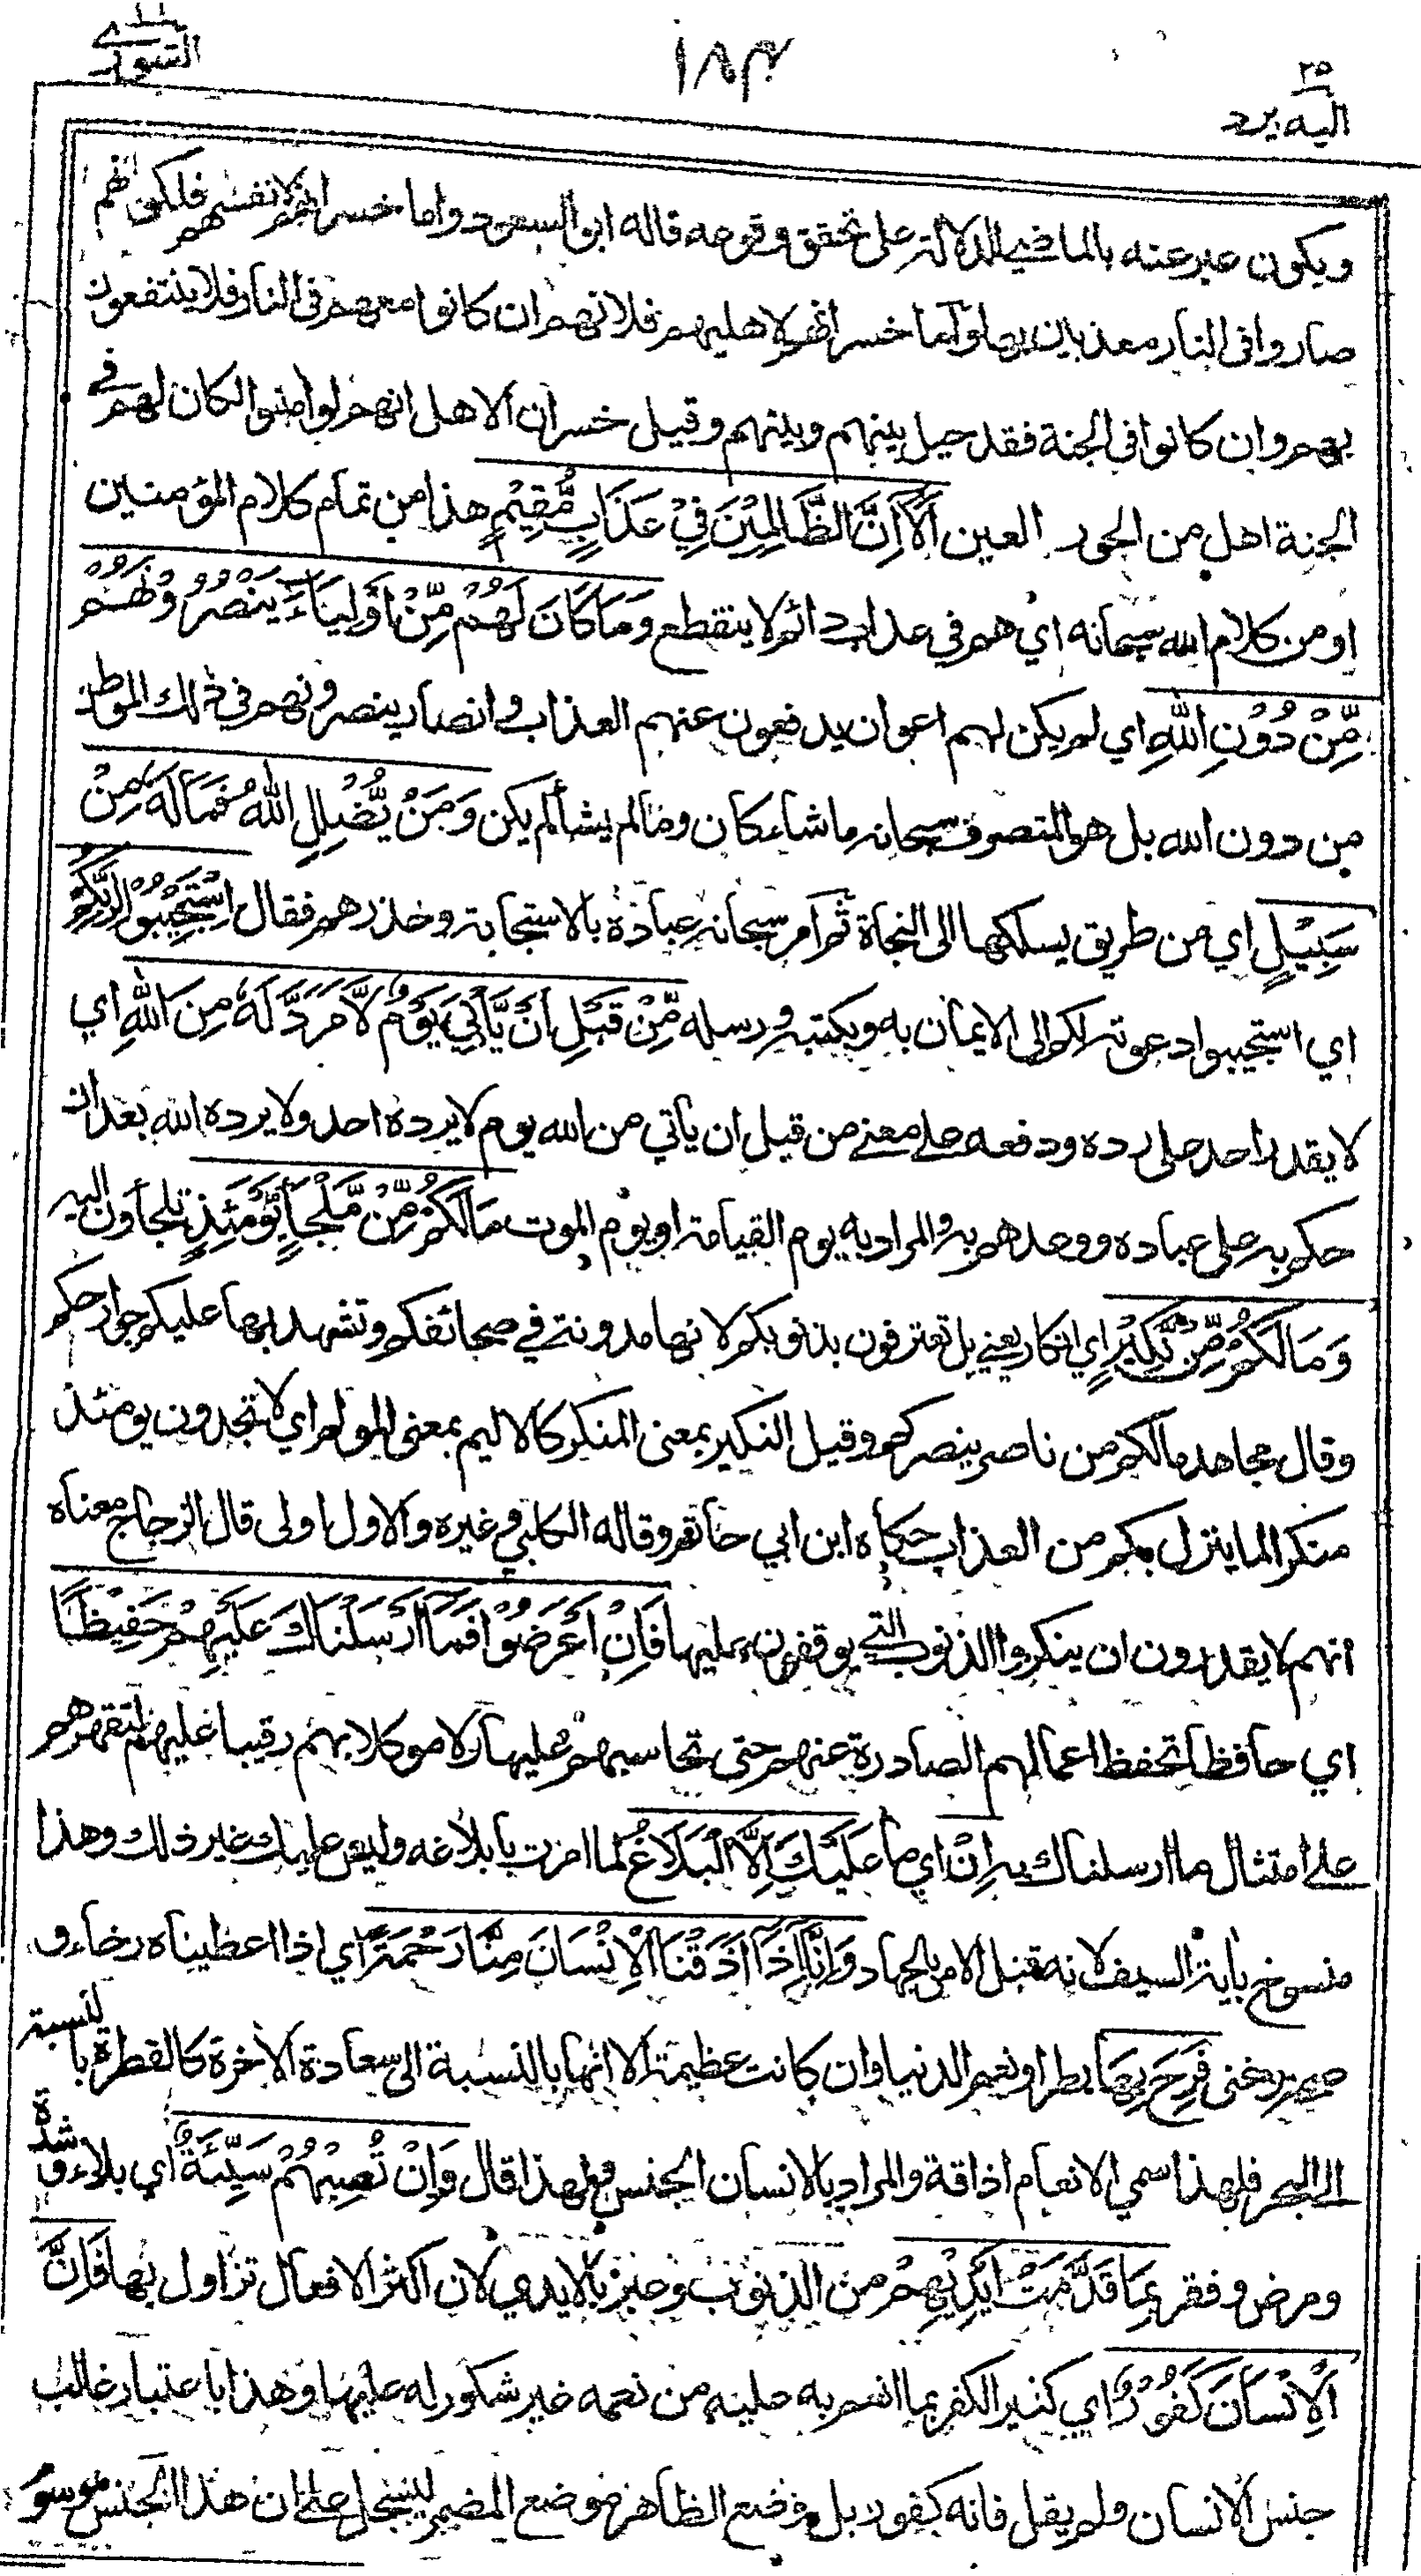 ٢٥
اليه يرد
١٨٣
الشورى
ويكون عبر عنه بالماضي للدلالة على تحقق وقوعه قاله ابو السعود واما خسرانهم لانفسهم فلكونهم
صاروا في النار معذبين بها واما خسرانهم لاهليهم فلانهم ان كانوا معهم في النار فلا ينتفعون
بهم وان كانوا في الجنة فقد حيل بينهم وبينهم وقيل خسران الاهل انهم لو امنوا لكان لهم في
الجنة اهل من الحور العين اَلَآ اِنَّ الظَّالِمِيْنَ فِيْ عَذَابٍ مُّقِيْمٍ هذا من تمام كلام المؤمنين
او من كلام الله سبحانه اي هم في عذاب دائم لا ينقطع وَمَا كَانَ لَهُمْ مِّنْ اَوْلِيَآءَ يَنْصُرُوْنَهُمْ
مِّنْ دُوْنِ اللهِ اي لم يكن لهم اعوان يدفعون عنهم العذاب وانصار ينصرونهم في ذلك الموطن
من دون الله بل هو المتصرف سبحانه ما شاء كان وما لم يشأ لم يكن وَمَنْ يُّضْلِلِ اللهُ فَمَا لَهٗ مِنْ
سَبِيْلٍ اي من طريق يسلكها الى النجاة ثم امر سبحانه عباده بالاستجابة وحذرهم فقال اِسْتَجِيْبُوْا لِرَبِّكُمْ
اي استجيبوا دعوته لكم الى الايمان به وبكتبه ورسله مِّنْ قَبْلِ اَنْ يَّأْتِيَ يَوْمٌ لَّا مَرَدَّ لَهٗ مِنَ اللهِ اي
لا يقدر احد على رده ودفعه على معنى من قبل ان يأتي من الله يوم لا يرده احد ولا يرده الله بعد ان
حكم به على عباده ووعدهم به والمراد به يوم القيامة او يوم الموت مَا لَكُمْ مِّنْ مَّلْجَأٍ يَّوْمَئِذٍ تلجأون اليه
وَمَا لَكُمْ مِّنْ نَّكِيْرٍ اي انكار يعني بل تعترفون بذنوبكم لانها مدونة في صحائفكم وتشهد بها عليكم جوارحكم
وقال مجاهد مالكم من ناصر ينصركم وقيل النكير بمعنى المنكر كالاليم بمعنى المولم اي لا تجدون يومئذ
منكرا لما ينزل بكم من العذاب حكاه ابن ابي حاتم وقاله الكلبي وغيره والاول اولى قال الزجاج معناه
انهم لا يقدرون ان ينكروا الذنوب التي يوقفون عليها فَاِنْ اَعْرَضُوْا فَمَآ اَرْسَلْنَاكَ عَلَيْهِمْ حَفِيْظًا
اي حافظا تحفظ اعمالهم الصادرة عنهم حتى تحاسبهم عليها ولا موكلا بهم رقيبا عليهم لتقهرهم
على امتثال ما ارسلناك به اِنْ اي ما عَلَيْكَ اِلَّا الْبَلَاغُ لما امرت بابلاغه وليس عليك غير ذلك وهذا
منسوخ باية السيف لانه قبل الامر بالجهاد وَاِنَّآ اِذَآ اَذَقْنَا الْاِنْسَانَ مِنَّا رَحْمَةً اي اذا اعطيناه رخاء و
صحة وغنى فَرِحَ بِهَا بطرا ونعم الدنيا وان كانت عظيمة الا انها بالنسبة الى سعادة الاخرة كالقطرة بالنسبة
الى البحر فلهذا سمي الانعام اذاقة والمراد بالانسان الجنس ولهذا قال وَاِنْ تُصِبْهُمْ سَيِّئَةٌ اي بلاء وشدة
ومرض وفقر بِمَا قَدَّمَتْ اَيْدِيْهِمْ من الذنوب وعبر بالايدي لان اكثر الافعال تزاول بها فَاِنَّ
الْاِنْسَانَ كَفُوْرٌ اي كثير الكفر بما انعم به عليه من نعمه غير شكور له عليها وهذا باعتبار غالب
جنس الانسان ولم يقل فانه كفور بل وضع الظاهر موضع المضمر ليسجل على ان هذا الجنس موسو